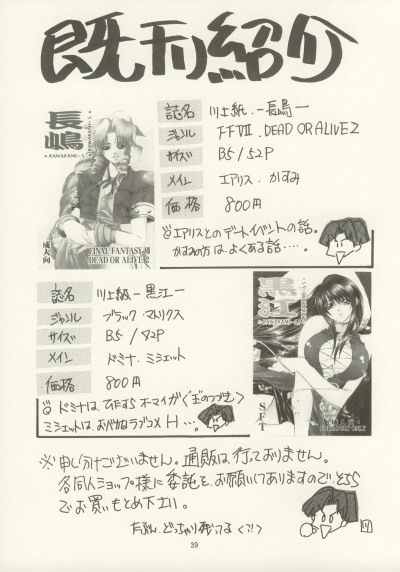 既刊紹介
長嶋
KAWAKAMI-
成人向
FINAL FANTASY VII
DEAD OR ALIVE 2
誌名 川上紙.一長嶋一
ジャンル FFⅦ.DEAD OR ALIVE2
サイズ B5/52P
メイン エアリス.かすみ
価格 800円
エアリスとのデートイベントの話。
かすみの方は、よくある話…。
誌名 川上級一黒江一
ジャンル ブラック・マトリクス
サイズ B5/42P
メイン ドミナ.ミシェット
価格 800円
黒江
SFT
ドミナは、ひたすらオーマイがぐ(玉のつづき)
ミシェットは、おバカなラブコメH…。
※申し分けございません。通販は行っておりません。
各同人ショップ様に委託をお願いしてありますので、そちら
でお買いもとめ下さい。
たぶん、どっちゃり残ってる<!?>
39